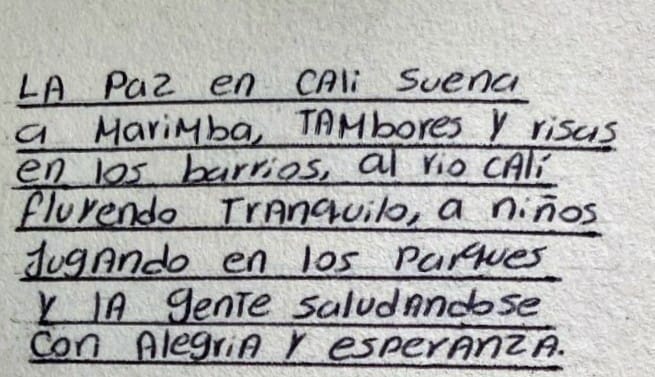 LA Paz en CAli suena
a Marimba, TAMbores y risas
en los barrios, al rio CAli
flurendo TrAnquilo, a niños
JugAndo en los Parques
y lA genTe saludAndose
con AlegriA y esperAnzA.